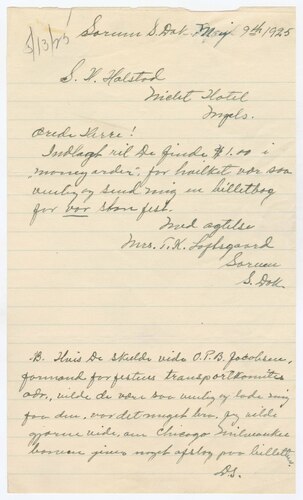 5/13/25
Sorum S. Dak. Maj 9th 1925
S. H. Holstad
Niclet Hotel
Mpls.
Ærede Herre!
Indlagt vil De finde $1.00 i
moneyorder, for hvilket vær saa
venlig og send mig en billetbog
for vor store fest.
Med agtelse
Mrs. T. K.
Sorum
S. Dak.
B. Hvis De skulde vide O.P.B. Jacobsen,
formand for festens transportkomite
adr., vilde De være saa venlig og lade mig
faa den, var det meget bra. Jeg vilde
gjerne vide, om Chicago Milwaukee
banen giver noget afslag paa billetter.
D.S.